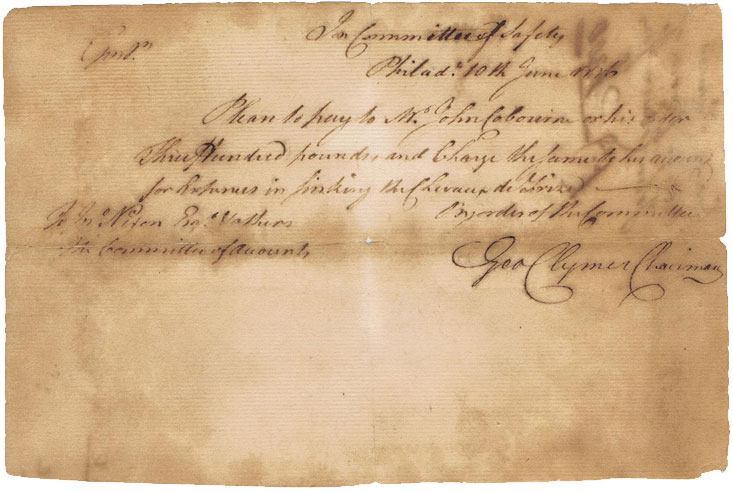 In Committee of Safety
Philad.ª 10th June 1776
Please to pay to Mr. John Cobourne or his order
Three Hundred pounds, and Charge the same to his account
for Expences in sinking the Chevaux de Frize
To Jnº Nixon Esqr. & others
By order of the Committee
the Committee of Accounts
Geo Clymer Chairman